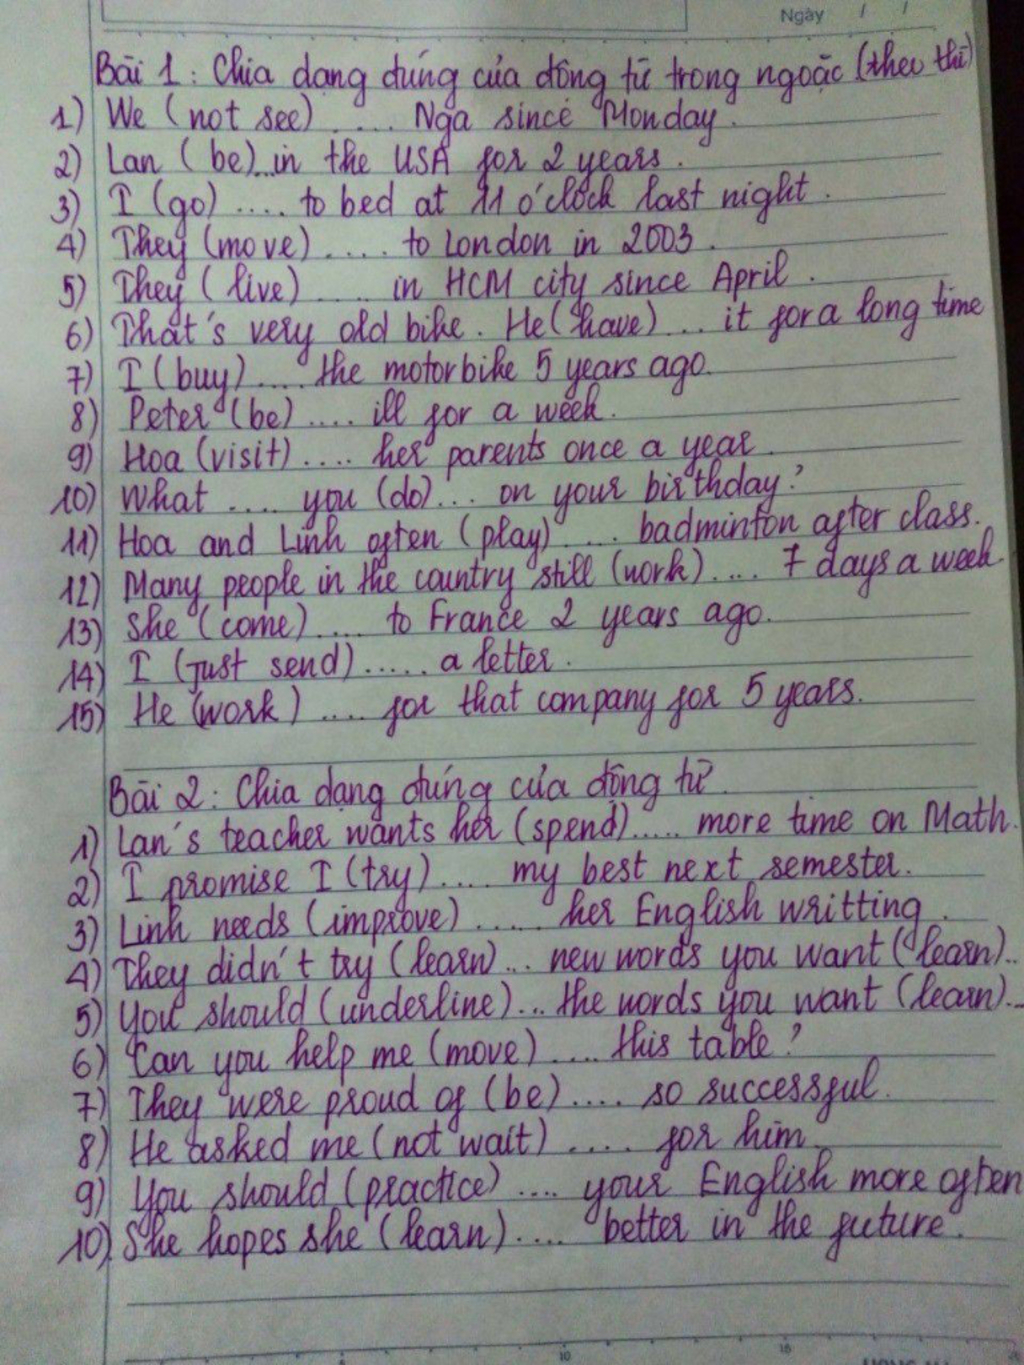 Ngày / /
Bài 1: Chia dạng đúng của động từ trong ngoặc (theo thì)
1) We (not see) ..... Nga since Monday.
2) Lan (be)...in the USA for 2 years.
3) I (go) .... to bed at 11 o'clock last night.
4) They (move) ..... to London in 2003.
5) They (live) ..... in HCM city since April.
6) That's very old bike. He (have) ... it for a long time
7) I (buy) .... the motorbike 5 years ago.
8) Peter (be) .... ill for a week.
9) Hoa (visit) .... her parents once a year.
10) What .... you (do)... on your birthday?
11) Hoa and Linh often (play) .... badminton after class.
12) Many people in the country still (work) .... 7 days a week.
13) She (come) .... to France 2 years ago.
14) I (just send) ..... a letter.
15) He (work) .... for that company for 5 years.
Bài 2: Chia dạng đúng của động từ.
1) Lan's teacher wants her (spend)..... more time on Math.
2) I promise I (try) .... my best next semester.
3) Linh needs (improve) ..... her English writting.
4) They didn't try (learn)... new words you want (learn)..
5) You should (underline)... the words you want (learn)...
6) Can you help me (move) .... this table?
7) They were proud of (be) .... so successful.
8) He asked me (not wait) ..... for him.
9) You should (practice) .... your English more often
10) She hopes she (learn) .... better in the future.
10
15